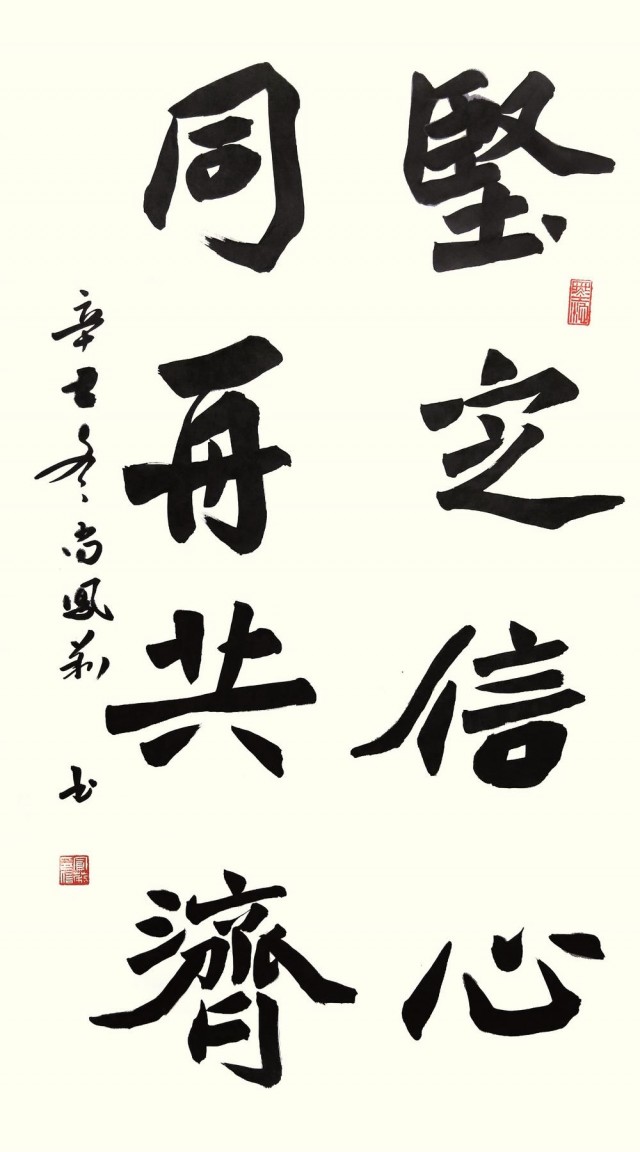 堅定信心
同舟共濟
辛丑冬尚鳳莉书